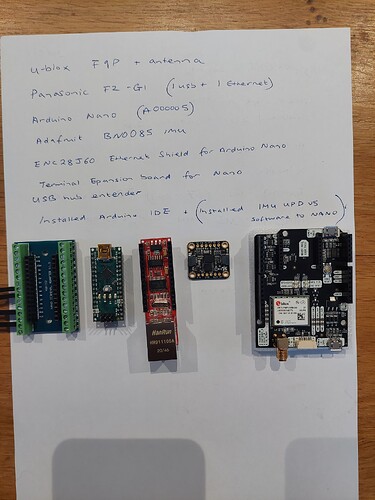 U-blox F9P + antenna
Panasonic FZ-G1 (1 usb + 1 Ethernet)
Arduino Nano (A000005)
Adafruit BN0085 IMU
ENC28J60 Ethernet Shield for Arduino Nano
Terminal Expansion board for Nano
USB hub entender
Installed Arduino IDE + (Installed IMU UPD V5
Software to NANO)
HanRun
HR911105A